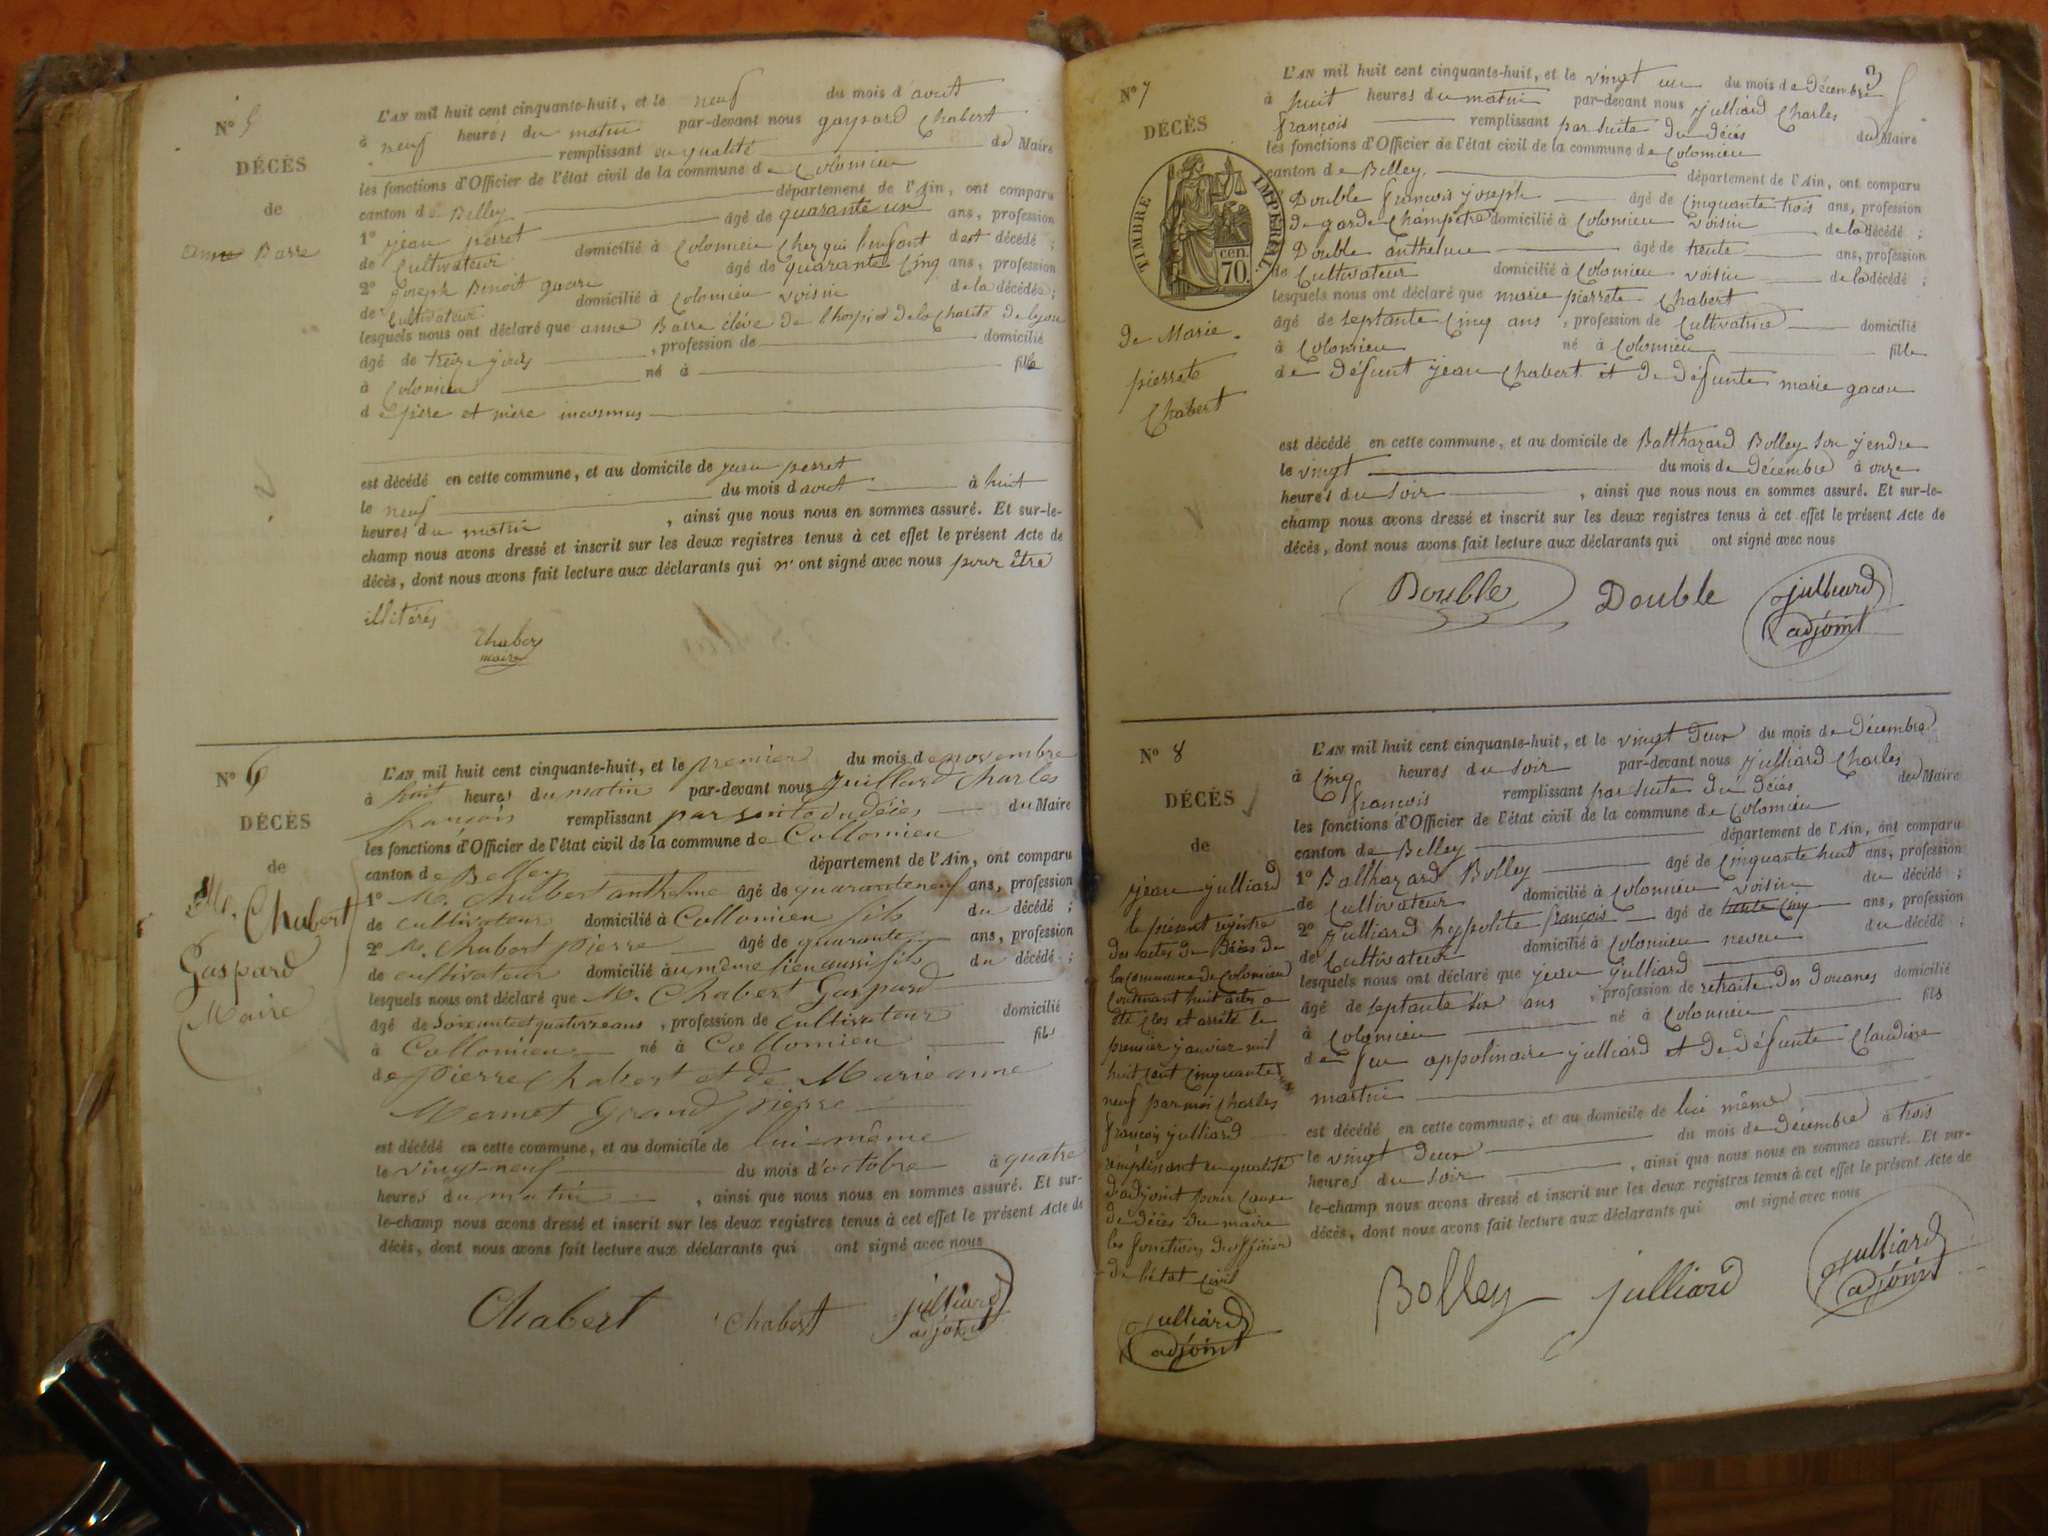 N° 5
DÉCÈS
de
anne Barre
L'AN mil huit cent cinquante-huit, et le neuf du mois d'avout
à neuf heures du matin par-devant nous gaspard Chabert
remplissant en qualité de Maire
les fonctions d'Officier de l'état civil de la commune de Colomieu
canton de Belley département de l'Ain, ont comparu
1° jean perret âgé de quarante un ans, profession
de Cultivateur domicilié à Colomieu Chez qui l'enfant est décédé ;
2° joseph Benoit âgé de quarante Cinq ans, profession
de Cultivateur domicilié à Colomieu voisin de la décédée ;
lesquels nous ont déclaré que anne Barre éléve de l'hospice de la Charité de lyon
âgé de treize jours , profession de domicilié
à Colomieu né à fille
de père et mère inconnus
est décédé en cette commune, et au domicile de jean perret
le neuf du mois d'avout à huit
heures du matin , ainsi que nous nous en sommes assuré. Et sur-le-
champ nous avons dressé et inscrit sur les deux registres tenus à cet effet le présent Acte de
décès, dont nous avons fait lecture aux déclarants qui n'ont signé avec nous pour être
illitérés
Chabert
maire
N° 6
DÉCÈS
de
Mr. Chabert
Gaspard
Maire
L'AN mil huit cent cinquante-huit, et le premier du mois de novembre
à huit heures du matin par-devant nous Juilliard Charles
françois remplissant par suite du décès du Maire
les fonctions d'Officier de l'état civil de la commune de Collomieu
canton de Belley département de l'Ain, ont comparu
1° Mr. Chabert anthelme âgé de quarante neuf ans, profession
de cultivateur domicilié à Collomieu fils du décédé ;
2° Mr. Chabert pierre âgé de quarante ans, profession
de cultivateur domicilié au même lieu aussi fils du décédé ;
lesquels nous ont déclaré que Mr. Chabert Gaspard
âgé de Soixante et quatorze ans , profession de Cultivateur domicilié
à Collomieu né à Collomieu fils
de pierre Chabert et de Marie anne
Mermet Grand pierre
est décédé en cette commune, et au domicile de lui-même
le vingt-neuf du mois d'octobre à quatre
heures du matin , ainsi que nous nous en sommes assuré. Et sur-
le-champ nous avons dressé et inscrit sur les deux registres tenus à cet effet le présent Acte de
décès, dont nous avons fait lecture aux déclarants qui ont signé avec nous
Chabert Chabert julliard
adjoint
3
N° 7
DÉCÈS
TIMBRE IMPERIAL
70 cen.
de Marie
pierrete
Chabert
L'AN mil huit cent cinquante-huit, et le vingt un du mois de Décembre
à huit heures du matin par-devant nous julliard Charles
françois remplissant par suite du décès du Maire
les fonctions d'Officier de l'état civil de la commune de Colomieu
canton de Belley département de l'Ain, ont comparu
Double françois joseph âgé de Cinquante trois ans, profession
de garde Champetre domicilié à Colomieu voisin de la décédé ;
Double anthelme âgé de trente ans, profession
de Cultivateur domicilié à Colomieu voisin de la décédé ;
lesquels nous ont déclaré que marie pierrete Chabert
âgé de septante Cinq ans , profession de Cultivatrice domicilié
à Colomieu né à Colomieu fille
de défunt jean Chabert et de défunte marie gacon
est décédé en cette commune, et au domicile de Balthazard Bolley son jendre
le vingt du mois de décembre à onze
heures du soir , ainsi que nous nous en sommes assuré. Et sur-le-
champ nous avons dressé et inscrit sur les deux registres tenus à cet effet le présent Acte de
décès, dont nous avons fait lecture aux déclarants qui ont signé avec nous
Double Double julliard
adjoint
N° 8
DÉCÈS
de
jean julliard
L'AN mil huit cent cinquante-huit, et le vingt deux du mois de décembre
à Cinq heures du soir par-devant nous julliard Charles
françois remplissant par suite du décès du Maire
les fonctions d'Officier de l'état civil de la commune de Colomieu
canton de Belley département de l'Ain, ont comparu
1° Balthazard Bolley âgé de Cinquante huit ans, profession
de Cultivateur domicilié à Colomieu voisin du décédé ;
2° julliard hypolite françois âgé de trente Cinq ans, profession
de Cultivateur domicilié à Colomieu neveu du décédé ;
lesquels nous ont déclaré que jean julliard
âgé de septante six ans , profession de retraite des Douanes domicilié
à Colomieu né à Colomieu fils
de feu appolinaire julliard et de défunte Claudine
martin
est décédé en cette commune, et au domicile de lui même
le vingt deux du mois de décembre à trois
heures du soir , ainsi que nous nous en sommes assuré. Et sur-
le-champ nous avons dressé et inscrit sur les deux registres tenus à cet effet le présent Acte de
décès, dont nous avons fait lecture aux déclarants qui ont signé avec nous
Bolley julliard julliard
adjoint
le présent registre
des actes de Décès de
la commune de Colomieu
Contenant huit actes a
été clos et arrêté le
premier janvier mil
huit cent cinquante
neuf par moi Charles
françois julliard
remplissant en qualité
d'adjoint pour cause
de décès du maire
les fonctions d'officier
de l'état civil
julliard
adjoint